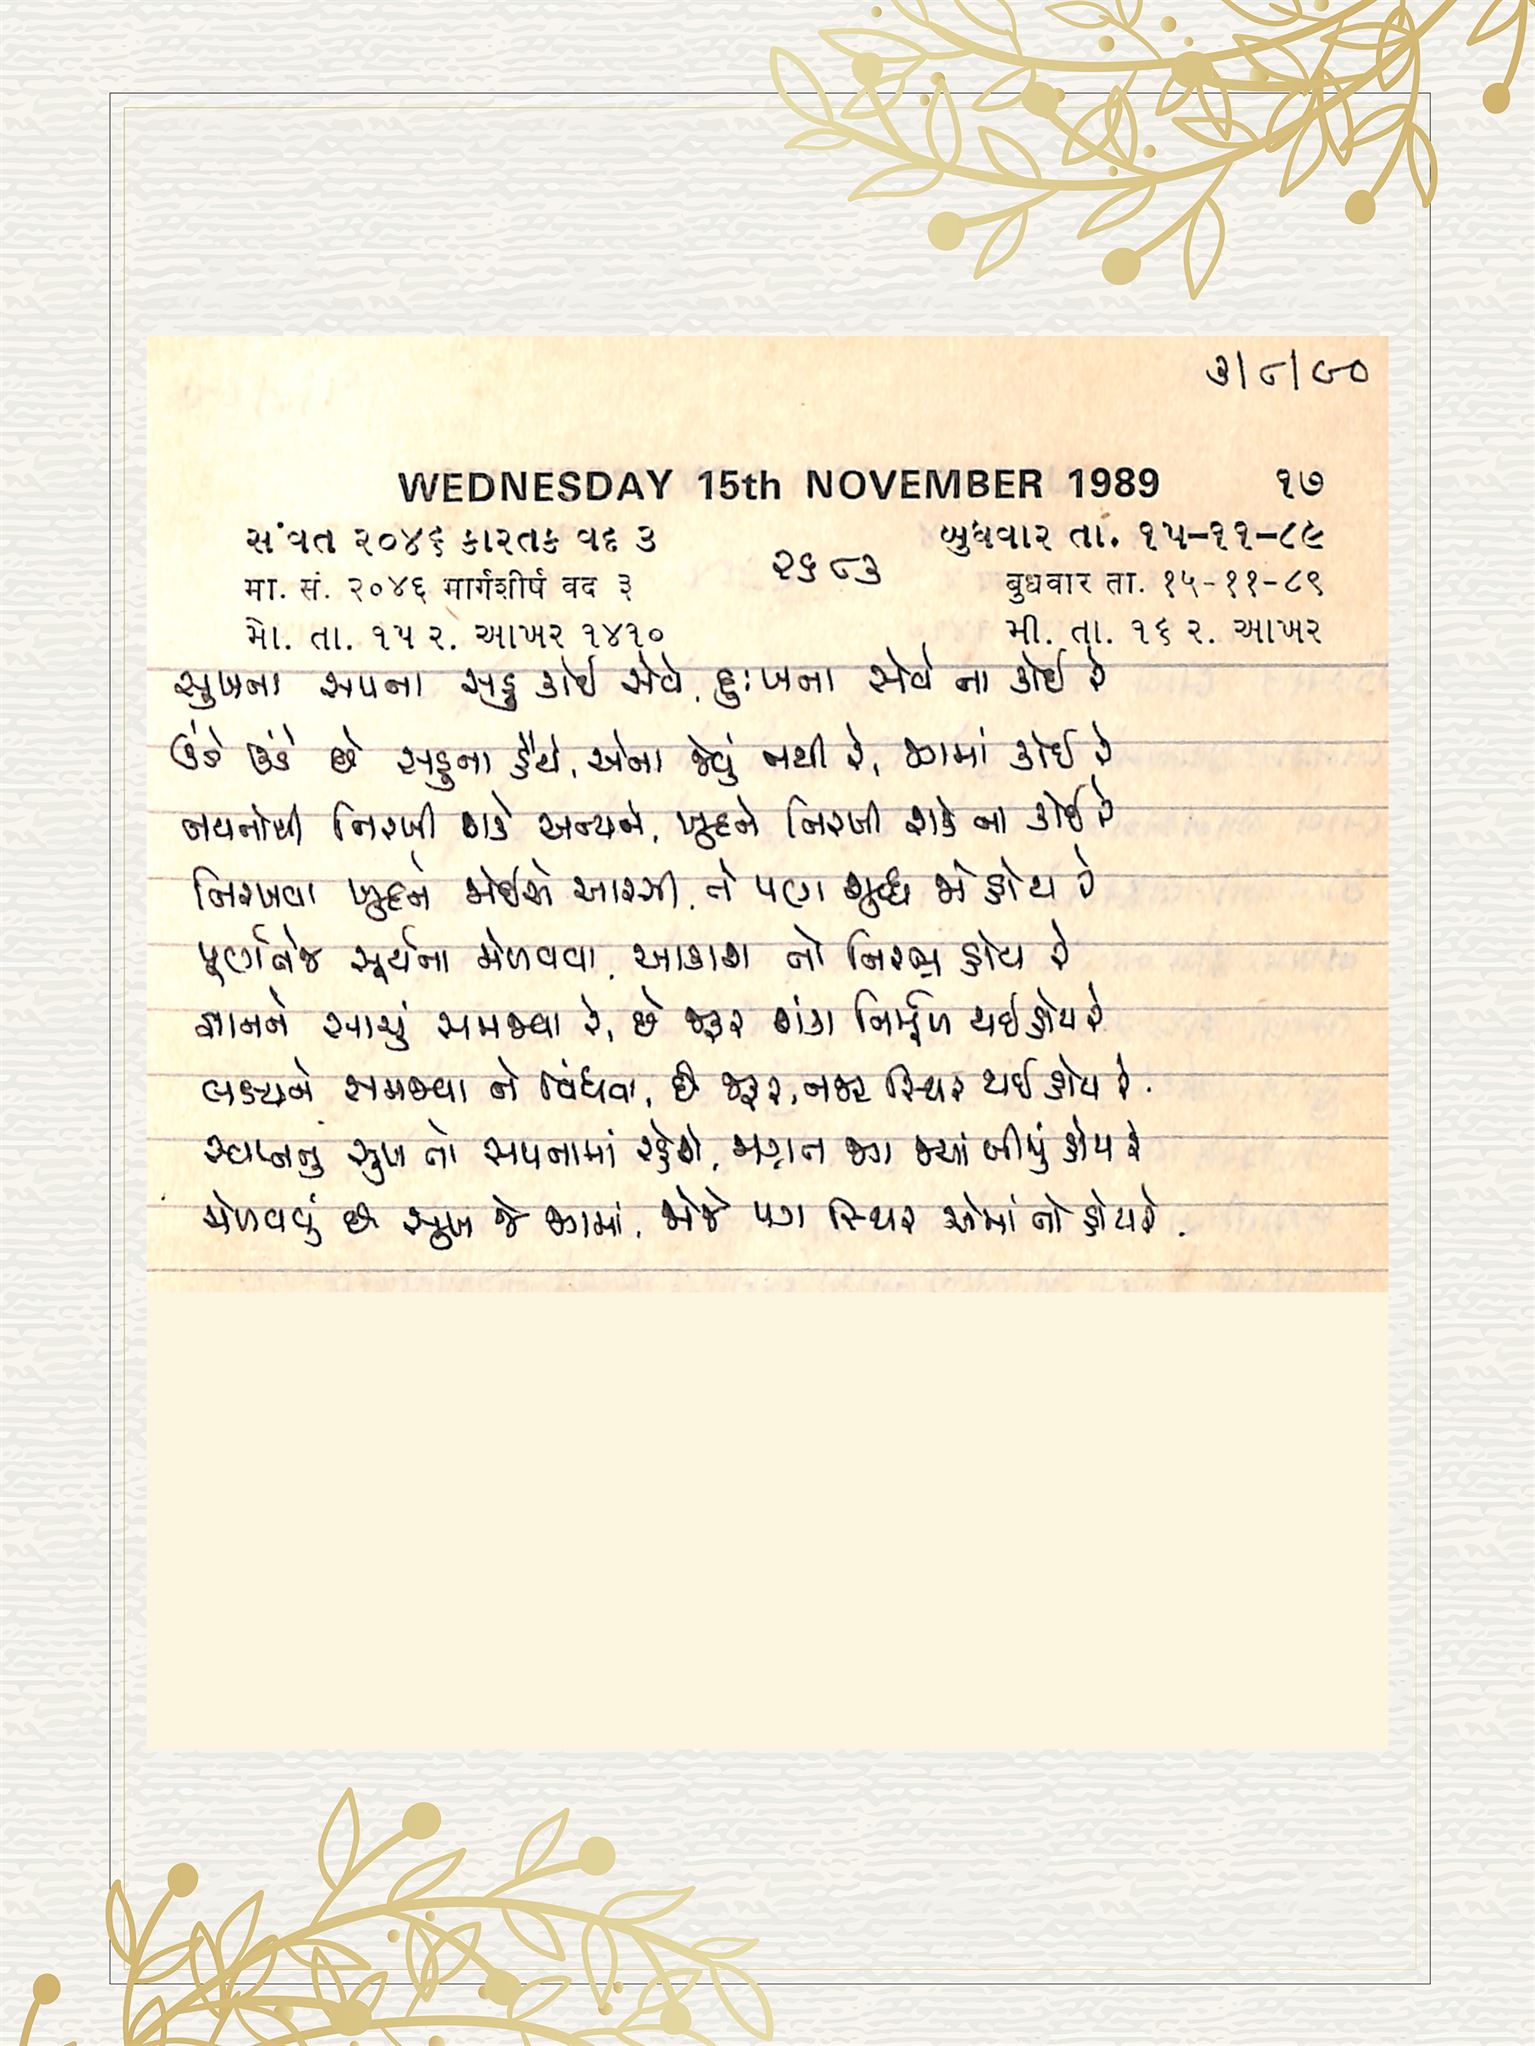 ૩|૮|૯૦
WEDNESDAY 15th NOVEMBER 1989 ૧૭
સંવત ૨૦૪૬ કારતક વદ ૩ બુધવાર તા. ૧૫–૧૧–૮૯
૨૬૮૩
मा. सं. २०४६ मार्गशीर्ष वद ३ बुधवार ता. १५-११-८९
મો. તા. ૧૫ ર. આખર ૧૪૧૦ મી. તા. ૧૬ ર. આખર
સુખના સપના સહુ કોઈ સેવે, દુઃખના સેવે ના કોઈ રે
ઉંડે ઉંડે છે સહુના હૈયે, એના જેવું નથી રે, જગમાં કોઈ રે
નયનોથી નિરખી શકે અન્યને, ખુદને નિરખી શકે ના કોઈ રે
નિરખવા ખુદને જોઈશે આરસી, તે પણ શુદ્ધ જો હોય રે
પૂર્ણ તેજ સૂર્યના મેળવવા, આકાશ તો નિરભ્ર હોય રે
જ્ઞાનને સાચું સમજવા રે, છે જરૂર શંકા નિર્મૂળ થઈ હોય રે
લક્ષ્યને સમજવા ને વિંધવા, છે જરૂર, નજર સ્થિર થઈ હોય રે.
સ્વપ્નનું સુખ તો સપનામાં રહેશે, જાગ્રત જગ જ્યાં બીજું હોય રે
મેળવવું છે સુખ જે જગમાં, જોજે પગ સ્થિર એમાં તો હોય રે.